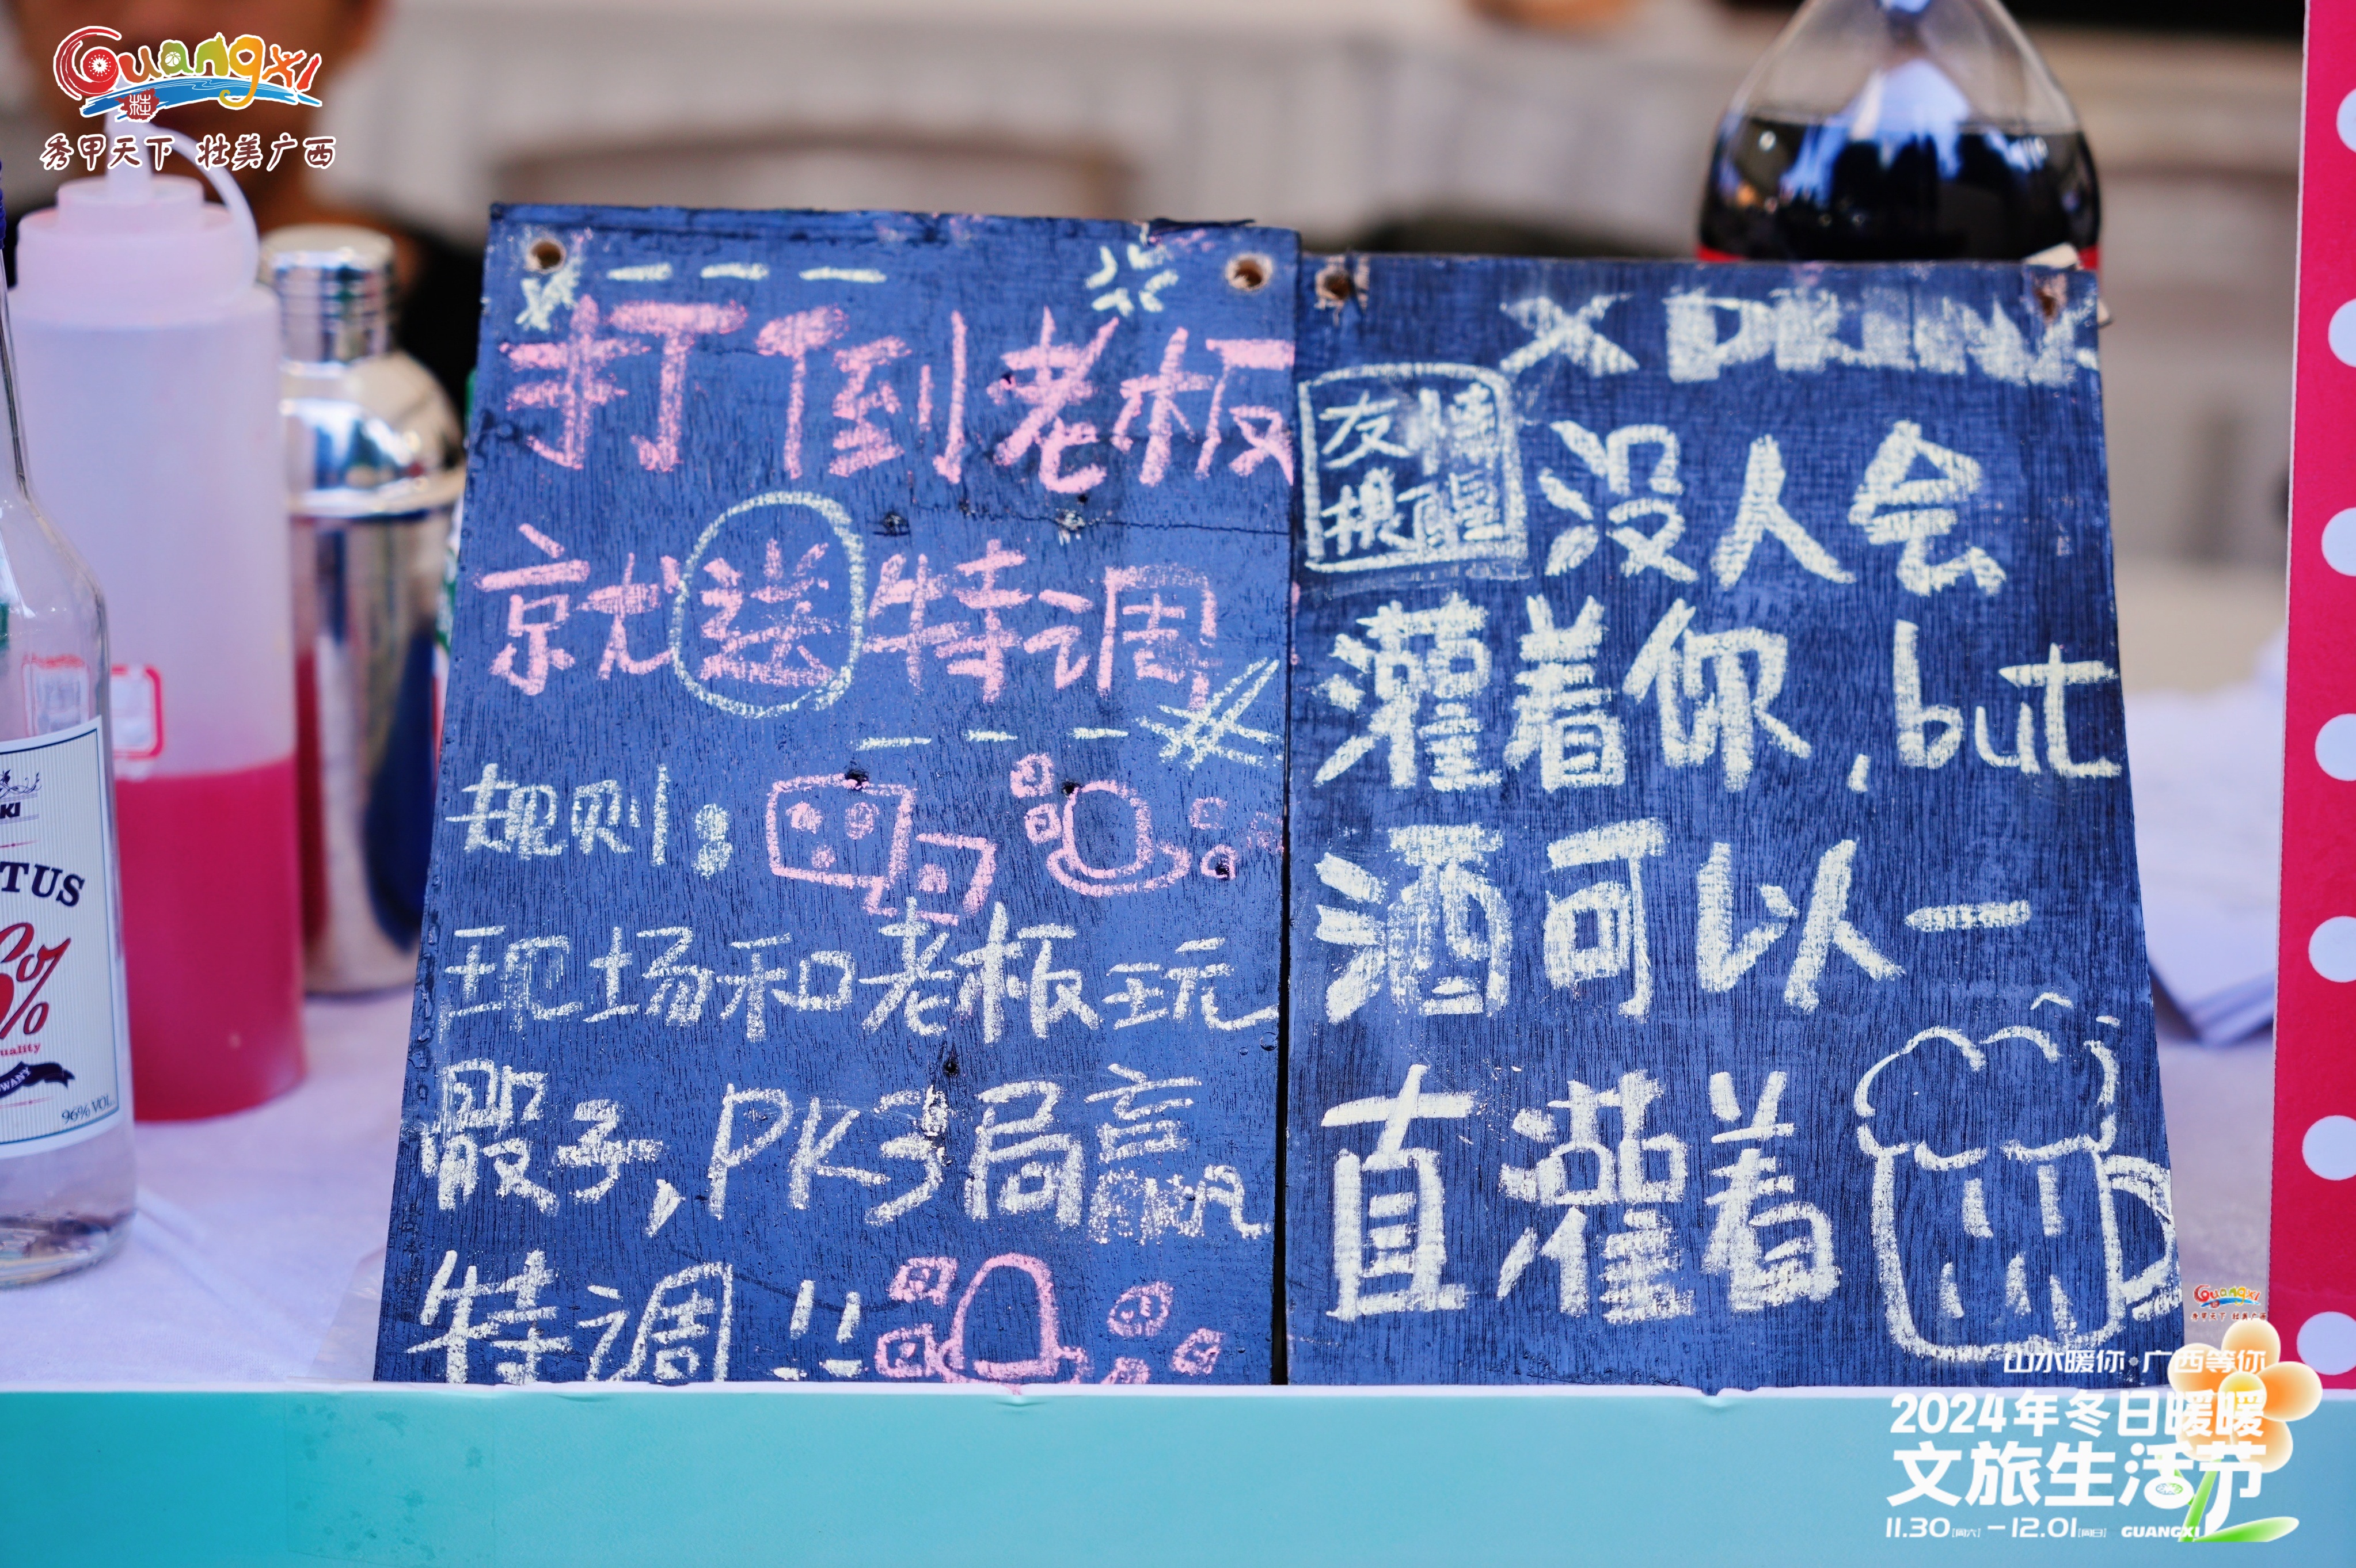 Guangxi
桂
秀甲天下 壮美广西
打倒老板
就送特调
规则:
现场和老板玩
骰子,PK3局赢
特调!!
X DRINK
友情
提醒
没人会
灌着你,but
酒可以一
直灌着
KI
TUS
%
uality
96% VOL.
Guangxi
秀甲天下 壮美广西
山水暖你·广西等你
2024年冬日暖暖
文旅生活节
11.30[周六]-12.01[周日] GUANGXI